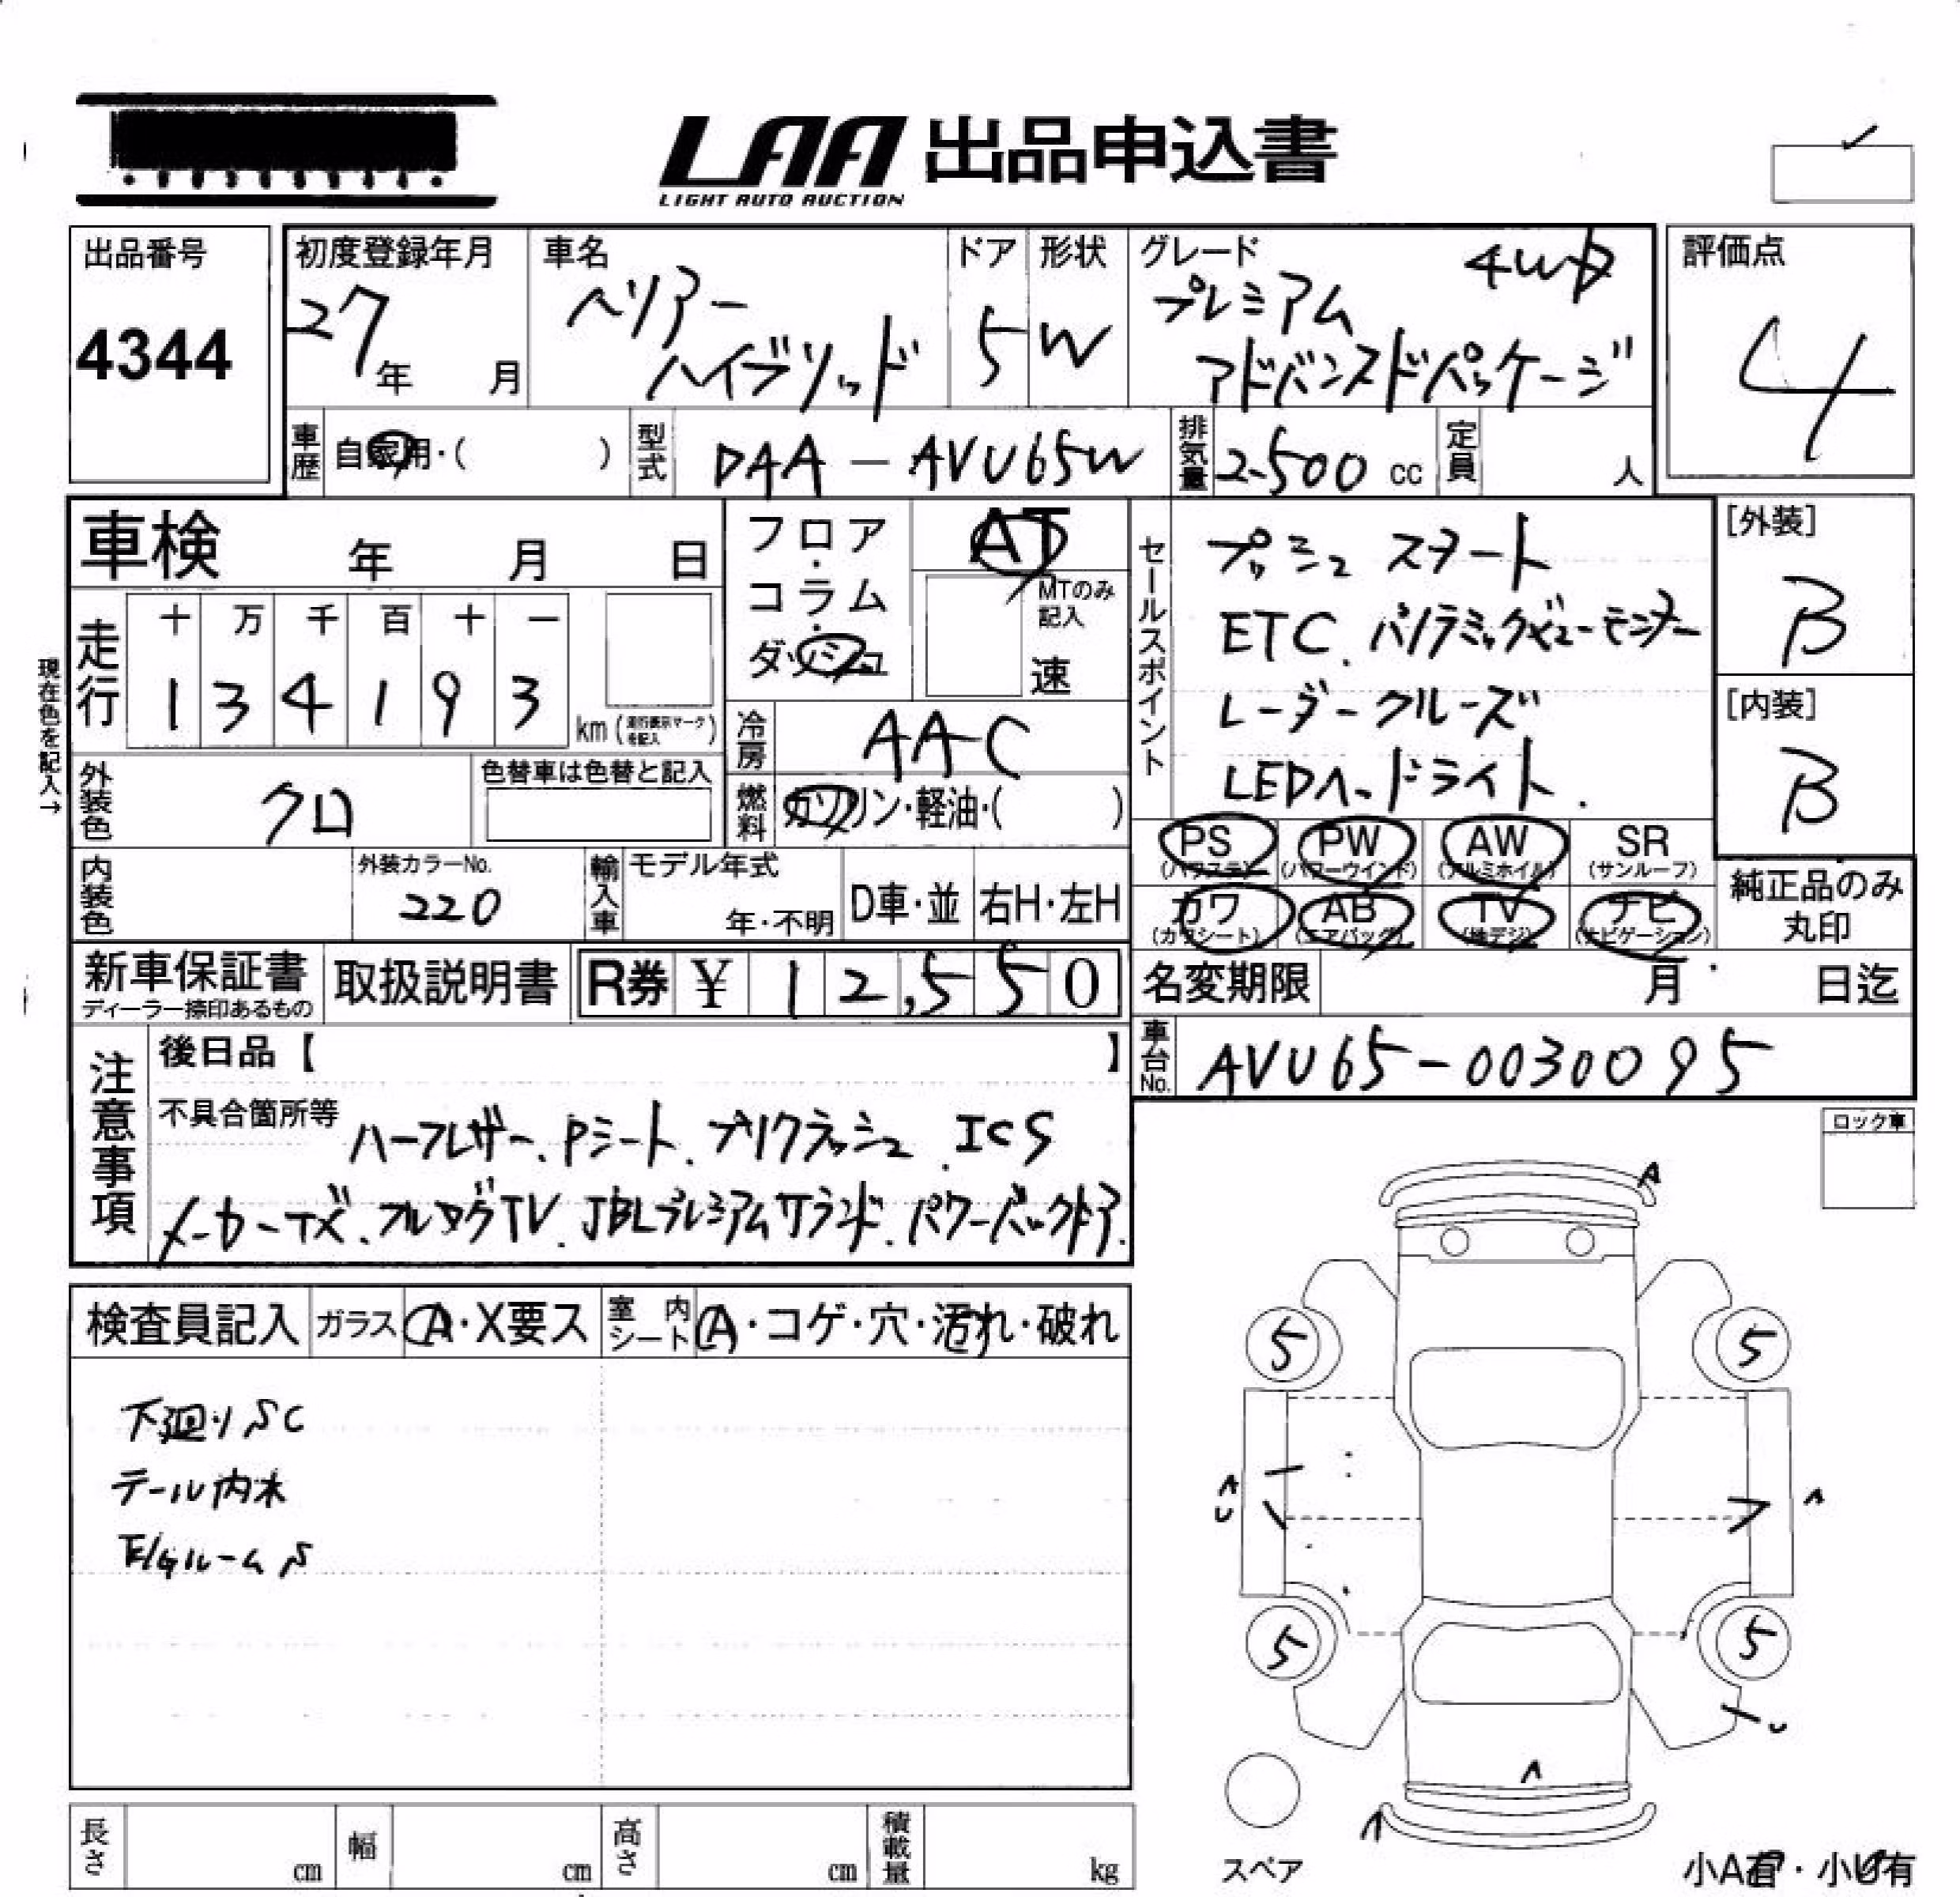 LAA 出品申込書
LIGHT AUTO AUCTION
出品番号
4344
初度登録年月
27年 月
車名
ハリアー
ハイブリッド
ドア
5
形状
W
グレード 4WD
プレミアム
アドバンスドパッケージ
評価点
4
車歴 自家用・( )
型式 DAA-AVU65W
排気量 2500 cc
定員 人
車検 年 月 日
フロア・コラム・ダッシュ
AT
MTのみ記入
速
走行
十 万 千 百 十 一
1 3 4 1 9 3
km (走行表示マークを記入)
現在色を記入→
冷房 AAC
外装色 クロ
色替車は色替と記入
燃料 ガソリン・軽油・( )
内装色
外装カラーNo.
220
輸入車
モデル年式
年・不明
D車・並
右H・左H
セールスポイント
プッシュスタート
ETC、パノラミックビューモニター
レーダークルーズ
LEDヘッドライト.
[外装]
B
[内装]
B
PS (パワステ)
PW (パワーウインド)
AW (アルミホイル)
SR (サンルーフ)
カワ (カワシート)
AB (エアバッグ)
TV (地デジ)
ナビ (ナビゲーション)
純正品のみ
丸印
新車保証書
ディーラー捺印あるもの
取扱説明書
R券 ¥ 12,550
名変期限 月 日迄
車台No. AVU65-0030095
注意事項
後日品【 】
不具合箇所等
ハーフレザー、Pシート、プリクラッシュ、ICS
メーカーナビ、フルセグTV、JBLプレミアムサウンド、パワーバックドア.
ロック車
検査員記入
ガラス A・X要ス
室内シート A・コゲ・穴・汚れ・破れ
下廻りSC
テール内水
E/GルームS
A
5 5
A
U
A
5 5
U
A
A
スペア
小A有・小U有
長さ cm
幅 cm
高さ cm
積載量 kg